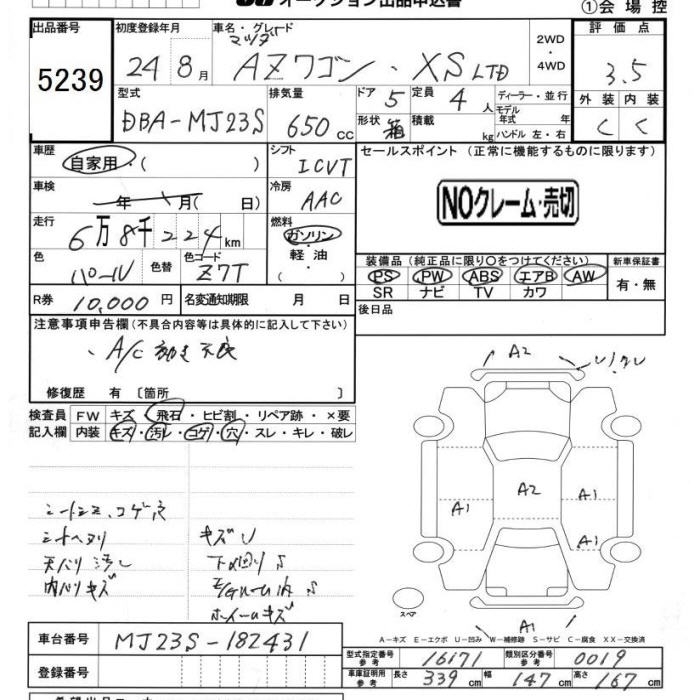 オークション出品申込書
①会場控
出品番号 初度登録年月 車名・グレード 評価点
マツダ
5239 24年 8月 AZワゴン・XS LTD 2WD・4WD 3.5
型式 排気量 ドア 5 定員 4人 ディーラー・並行 外装 内装
DBA-MJ23S 650cc 形状 箱 積載 kg モデル年式 年 ハンドル 左・右 C C
車歴 自家用・( ) シフト ICVT セールスポイント (正常に機能するものに限ります)
車検 年 月(日) 冷房 AAC
NOクレーム・売切
走行 6万8千224km 燃料 ガソリン・軽油・( )
色 パール 色替 色コード Z7T
装備品(純正品に限り○をつけてください) 新車保証書
PS PW ABS エアB AW 有・無
SR ナビ TV カワ
R券 10,000円 名変通知期限 月 日 後日品
注意事項申告欄(不具合内容等は具体的に記入して下さい)
・A/C 効き不良
修復歴 有〔箇所 〕
検査員記入欄 FW キズ・飛石・ヒビ割・リペア跡・×要
内装 キズ・汚レ・コゲ・穴・スレ・キレ・破レ
A2
A2
A1 A1
A1
A1
シートヘタリ キズU
天バリ汚レ 下廻りS
内バリキズ E/GルームS
ホイールキズ
スペア
A-キズ E-エクボ U-凹み W-補修跡 S-サビ C-腐食 XX-交換済
車台番号 MJ23S-182431
登録番号
型式指定番号 参考 16171 類別区分番号 参考 0019
車庫証明用 参考 長さ 339cm 幅 147cm 高さ 167cm